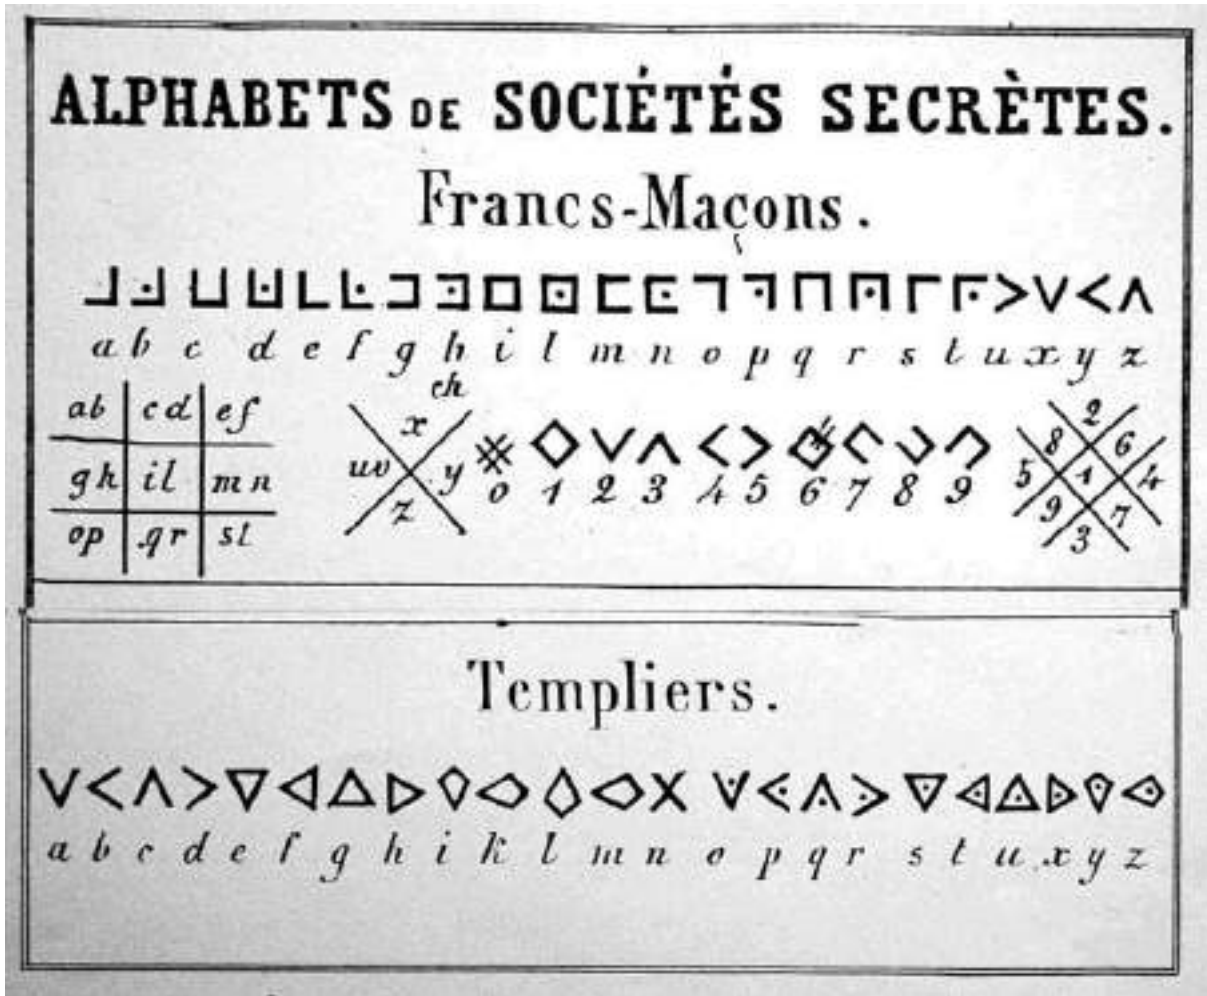 ALPHABETS DE SOCIÉTÉS SECRÈTES.
Francs-Maçons.
a b c d e f g h i l m n o p q r s t u x y z
ch
ab cd ef
gh il mn
op qr st
x
uv y
z
0 1 2 3 4 5 6 7 8 9
2
8 6
5 1 4
9 7
3
Templiers.
a b c d e f g h i k l m n o p q r s t u x y z